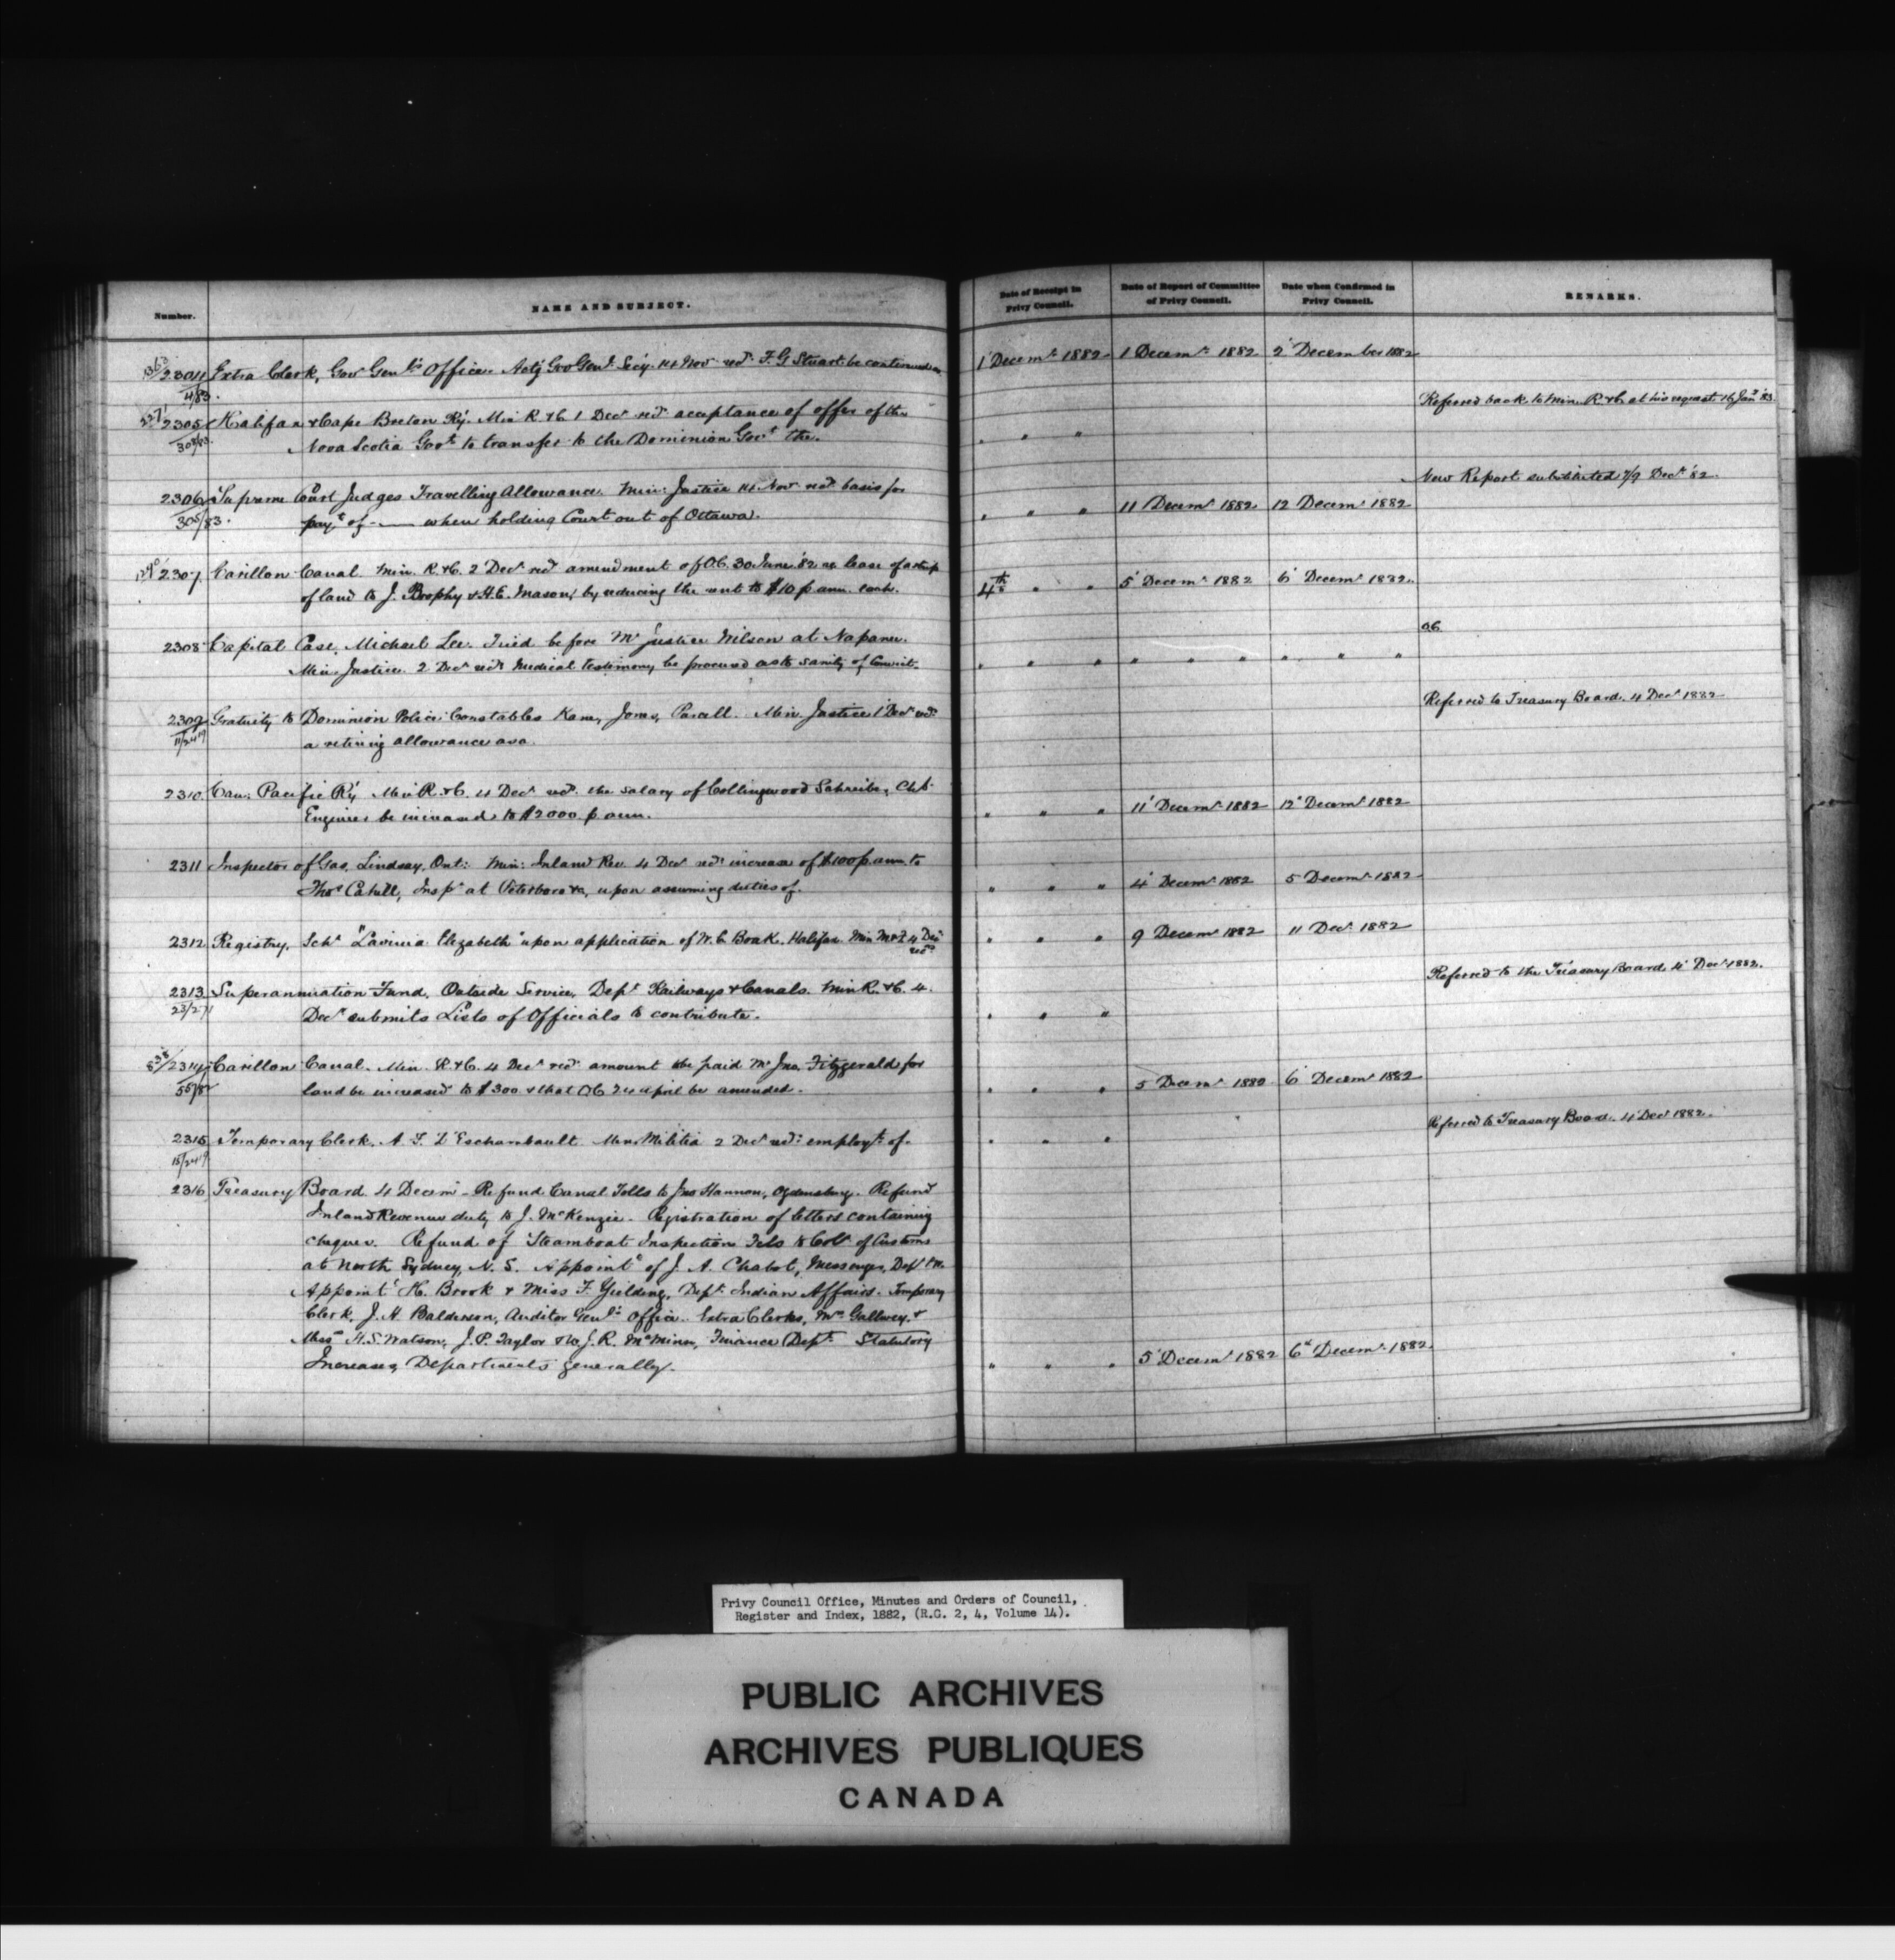 Number.
NAME AND SUBJECT.
Date of Receipt in Privy Council.
Date of Report of Committee of Privy Council.
Date when Confirmed in Privy Council.
REMARKS.
2304 Extra Clerk, Gov Genl's Office. Actg Gov Genl Secy. 14 Nov recd F. G Stuart be continued as
4/83.
1 Decemr 1882 1 Decemr 1882 2 December 1882
2305 Halifax & Cape Breton Ry. Min R. & C. 1 Decr recd acceptance of offer of the
Referred back to Min. R. & C. at his request 16 Jany '83
308/83. Nova Scotia Govt to transfer to the Dominion Govt the.
" " "
2306 Supreme Court Judges Travelling Allowance. Min: Justice 14 Novr recd basis for
New Report substituted 7/9 Decr '82
305/83. payt of — when holding Court out of Ottawa.
" " " 11 Decemr 1882 12 Decemr 1882
2307 Carillon Canal. Min. R. & C. 2 Decr recd amendment of O.C. 30 June '82 re lease of a strip
of land to J. Brophy & H. E. Mason, by reducing the rent to $10 p ann. each.
4th " " 5 Decemr 1882 6 Decemr 1882.
2308 Capital Case. Michael Lee. Tried before Mr Justice Wilson at Napanee.
O.C.
Min. Justice. 2 Decr recds Medical testimony be procured as to sanity of Convict.
" " " " " " " " "
2309 Gratuity to Dominion Police Constables Kane, Jones, Parcell. Min. Justice 1 Decr recd
Referred to Treasury Board. 4 Decr 1882
11/2419 a retiring allowance as a.
2310 Can. Pacific Ry Min R. & C. 4 Decr recd the salary of Collingwood Schreiber, Chf.
Engineer be increased to $2000 p ann.
" " " 11 Decemr 1882 12 Decemr 1882
2311 Inspector of Gas, Lindsay, Ont: Min: Inland Rev. 4 Decr recds increase of $100 p ann. to
Thos Cahill, Inspr at Peterboro &c, upon assuming duties of.
" " " 4 Decemr 1882 5 Decemr 1882
2312 Registry. Schr "Lavinia Elizabeth" upon application of W. C Boak. Halifax. Min M & F 4 Decr
recd
" " " 9 Decemr 1882 11 Decr 1882
2313 Superannuation Fund, Outside Service, Dept Railways & Canals. Min R. & C. 4.
Referred to the Treasury Board 4 Decr 1882.
Decr submits Lists of Officials to contribute.
" " "
2314 Carillon Canal. Min. R & C. 4 Decr recd amount to be paid Mr Jno. Fitzgerald for
land be increased to $300 & that O.C. 24 April be amended.
" " " 5 Decemr 1882 6 Decemr 1882
2315 Temporary Clerk, A. T. D'Eschambault. Min. Militia 2 Decr recds employt of.
Referred to Treasury Board. 4 Decr 1882.
15/2419
" " "
2316 Treasury Board 4 Decemr - Refund Canal Tolls to Jno Hannon, Ogdensburg. Refund
Inland Revenue duty to J. McKenzie. Registration of letters containing
cheques. Refund of Steamboat Inspection Fees to Colr of Customs
at North Sydney, N. S. Appointt of J. A. Chabot, Messenger, Dept
Appoint H. Brook & Miss F. Yielding, Dept. Indian Affairs. Temporary
Clerk, J. H Balderson, Auditor Genl's Office. Extra Clerks, Mrs Gallwey &
Miss H. S. Watson, J. P. Taylor & J. R. McMinn, Finance Dept. Statutory
Increases, Departments generally.
" " " 5 Decemr 1882 6 Decemr 1882
Privy Council Office, Minutes and Orders of Council,
Register and Index, 1882, (R.G. 2, 4, Volume 14).
PUBLIC ARCHIVES
ARCHIVES PUBLIQUES
CANADA